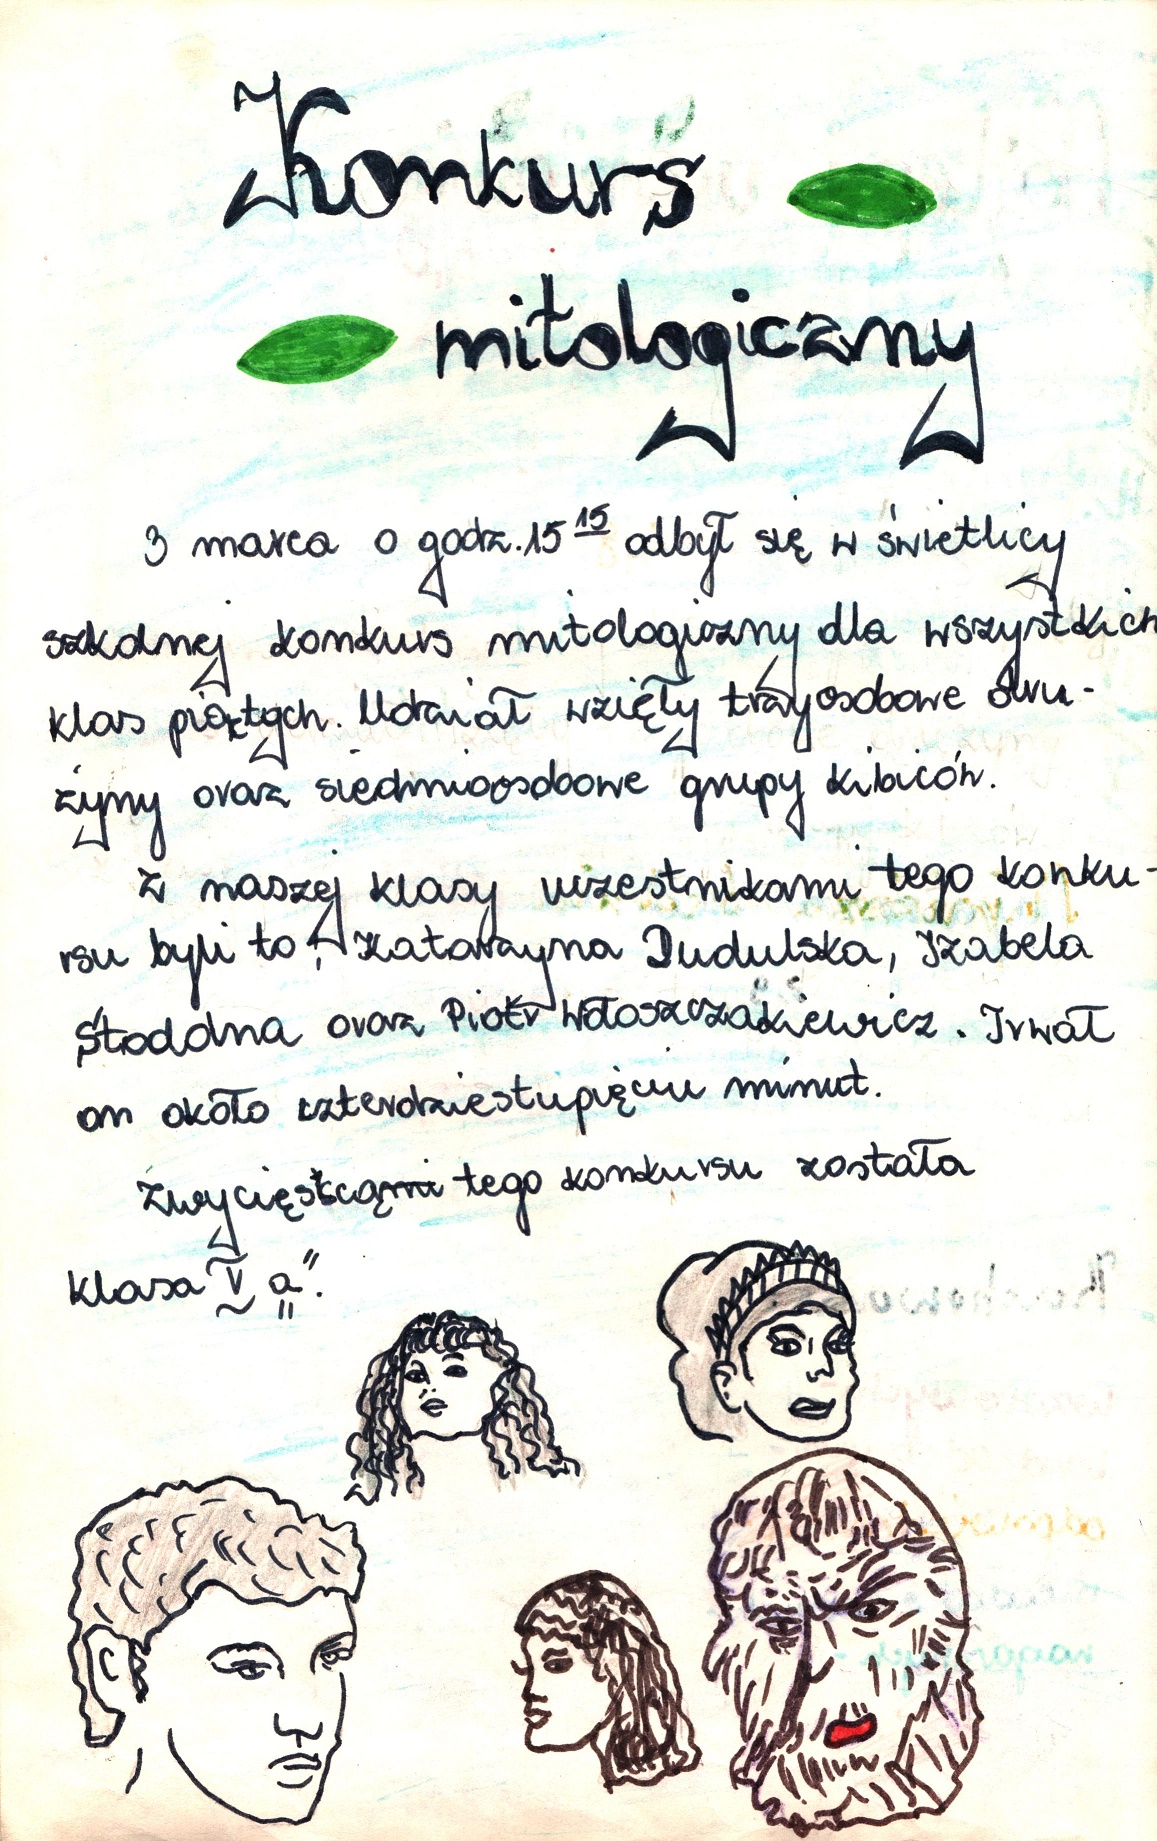 Konkurs
mitologiczny
3 marca o godz. 15 15 odbył się w świetlicy
szkolnej konkurs mitologiczny dla wszystkich
klas piątych. Udział wzięły trzyosobowe dru-
żyny oraz siedmioosobowe grupy kibiców.
Z naszej klasy uczestnikami tego konku-
rsu byli to: Katarzyna Dudulska, Izabela
Stodolna oraz Piotr Włoszczakiewicz. Trwał
on około czterdziestupięciu minut.
Zwycięscami tego konkursu została
klasa V „a”.